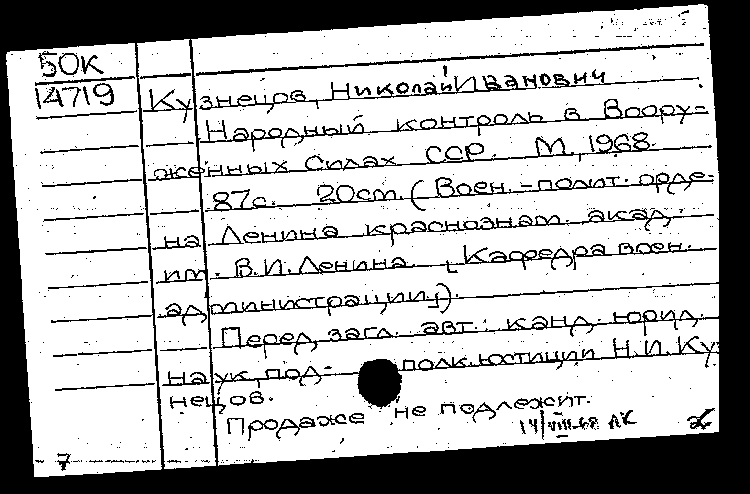 50К
14719
Кузнецов, Николай Иванович
Народный контроль в Воору-
женных Силах ССР. М, 1968.
87с. 20см. (Воен.-полит. орде-
на Ленина краснознам. акад.
им. В.И.Ленина. [Кафедра воен.
администрации]).
Перед загл. авт.: канд. юрид.
наук, под- полк. юстиции Н.И. Ку
нецов.
Продаже не подлежит.
14/VIII-68 ЛК
7